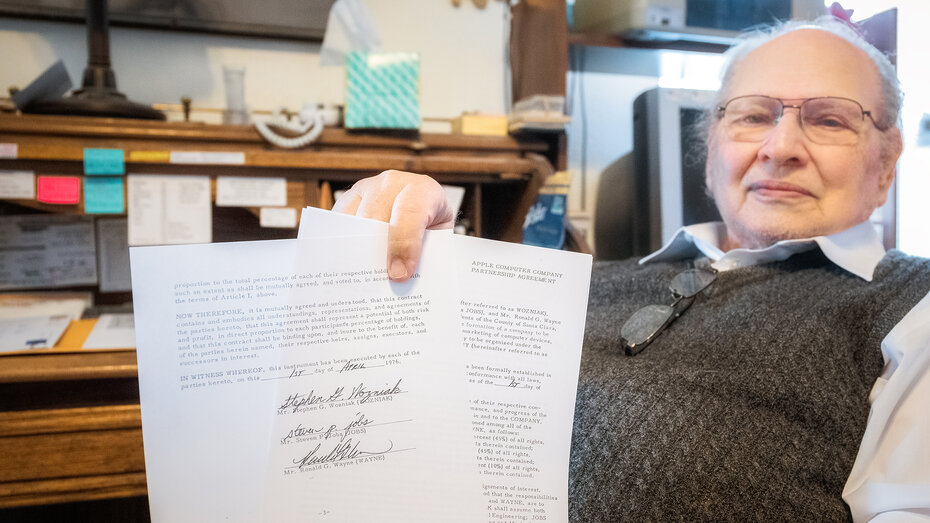 proportion to the total percentage of each of their respective
such an extent as shall be mutually agreed, and voted to, in accordance with
the terms of Article I, above.
NOW THEREFORE, it is mutually agreed and understood, that this contract
contains and embodies all understandings, representations, and agreements of
the parties hereto, that this agreement shall represent a potential of both risk
and profit, in direct proportion to each participants percentage of holdings,
and that this contract shall be binding upon, and inure to the benefit of, each
of the parties herein named, their respective heirs, assigns, executors, and
successors in interest.
IN WITNESS WHEREOF, this instrument has been executed by each of the
parties hereto, on this 1ST day of APRIL 1976.
Stephen G. Wozniak
Mr. Stephen G. Wozniak (WOZNIAK)
steven p. jobs
Mr. Steven P. Jobs (JOBS)
Mr. Ronald G. Wayne (WAYNE)
-3-
APPLE COMPUTER COMPANY
PARTNERSHIP AGREEMENT
after referred to as WOZNIAK,
JOBS), and Mr. Ronald G. Wayne
of the County of Santa Clara,
a formation of a company to be
marketing of computer devices,
to be organized under the
(hereinafter referred to as
been formally established in
conformance with all laws,
as of the 1ST day of
of their respective
and progress of the
in and to the COMPANY,
among all of the
as follows:
(45%) of all rights,
therein contained;
(45%) of all rights,
therein contained;
(10%) of all rights,
therein contained.
of interest,
that the responsibilities
and WAYNE, are to
shall assume both
Engineering; JOBS